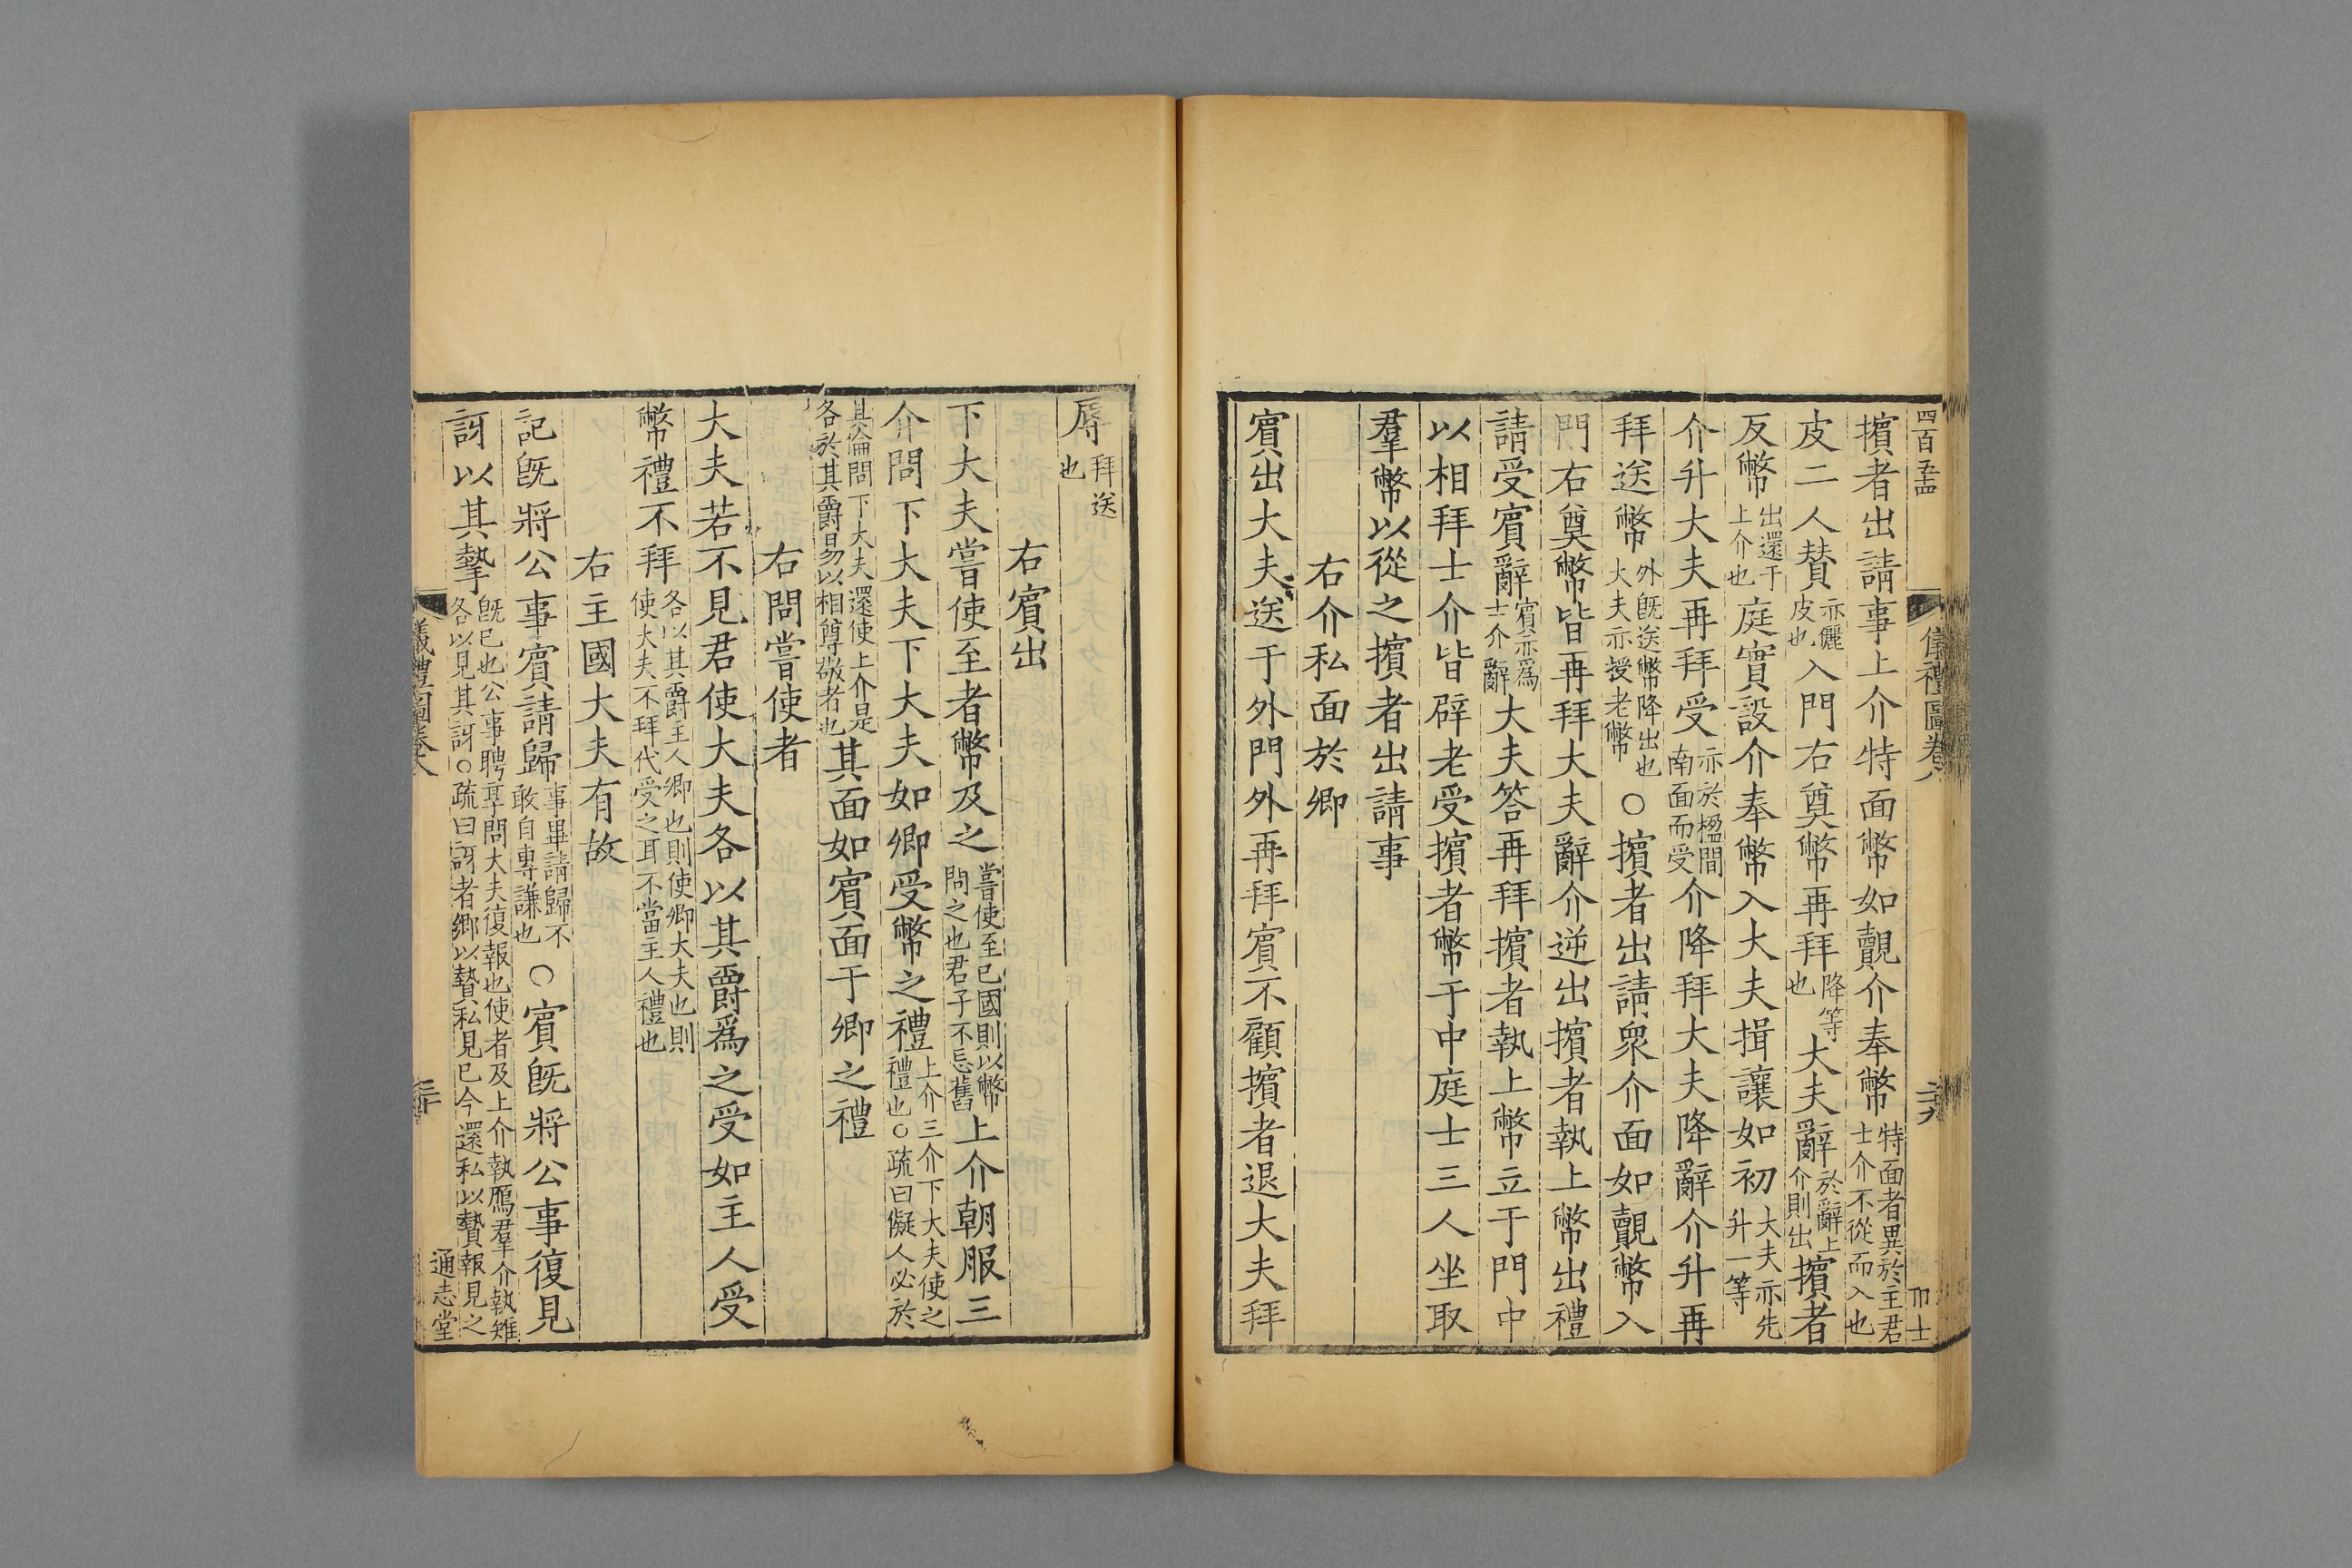 四百五十四
儀禮圖卷八
二十九
擯者出請事上介特面幣如覿介奉幣特面者異於主君士介不從而入也
皮二人贊亦儷皮也入門右奠幣再拜降等也大夫辭於辭上介則出擯者
反幣出還于上介也庭實設介奉幣入大夫揖讓如初大夫亦先升一等
介升大夫再拜受亦於楹間南面而受介降拜大夫降辭介升再
拜送幣外旣送幣降出也大夫亦授老幣○擯者出請衆介面如覿幣入
門右奠幣皆再拜大夫辭介逆出擯者執上幣出禮
請受賓辭賓亦爲士介辭大夫答再拜擯者執上幣立于門中
以相拜士介皆辟老受擯者幣于中庭士三人坐取
羣幣以從之擯者出請事
右介私面於卿
賓出大夫送于外門外再拜賓不顧擯者退大夫拜
辱拜送也
右賓出
下大夫嘗使至者幣及之嘗使至已國則以幣問之也君子不忘舊上介朝服三
介問下大夫下大夫如卿受幣之禮上介三介下大夫使之禮也○疏曰儗人必於
其倫問下大夫還使上介是各於其爵易以相尊敬者也其面如賓面于卿之禮
右問嘗使者
大夫若不見君使大夫各以其爵爲之受如主人受
幣禮不拜各以其爵主人卿也則使卿大夫也則使大夫不拜代受之耳不當主人禮也
右主國大夫有故
記旣將公事賓請歸事畢請歸不敢自專謙也○賓旣將公事復見
訝以其摯旣已也公事聘享問大夫復報也使者及上介執鴈羣介執雉各以見其訝○疏曰訝者鄉以贄私見已今還私以贄報見之
儀禮圖卷八
三十
通志堂